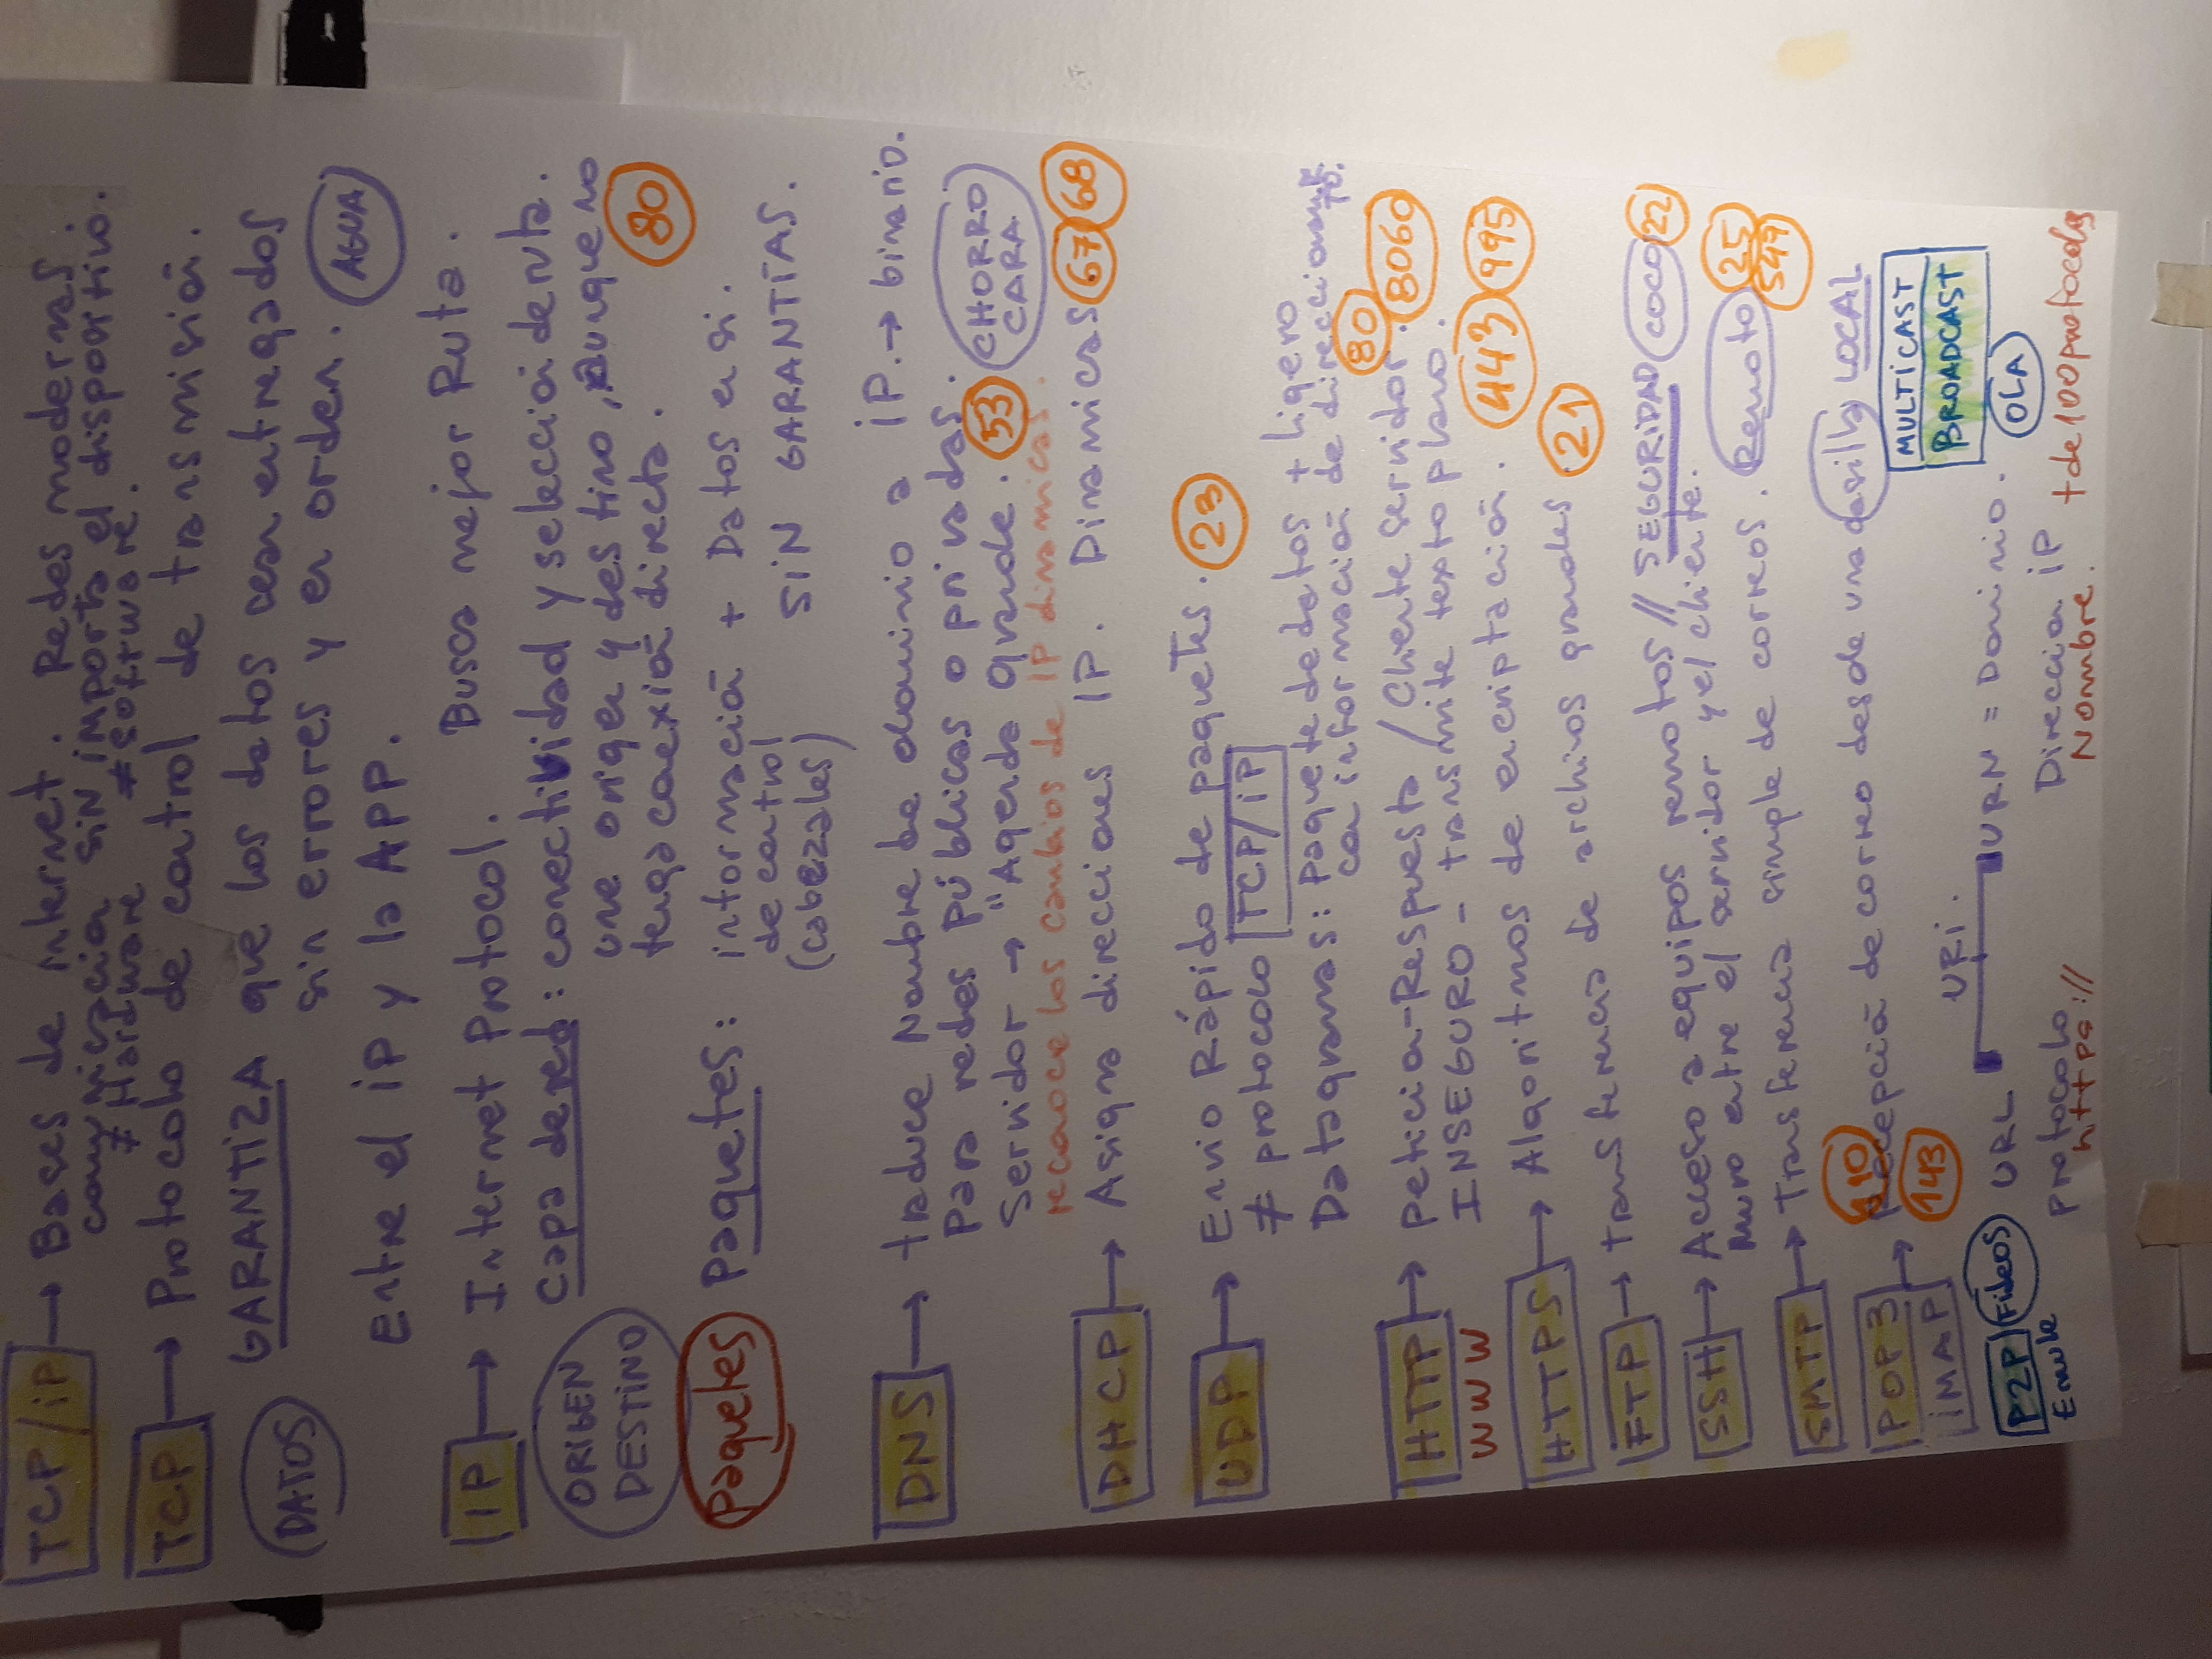 TCP/iP → Bases de internet. Redes modernas.
comunicación SIN importa el dispositivo.
≠ Hardware ≠ software.
TCP → Protocolo de control de transmisión.
DATOS GARANTIZA que los datos sean entregados
sin errores y en orden. AGUA
Entre el iP y la APP.
IP → Internet Protocol. Busca mejor Ruta.
ORIGEN DESTINO Capa de red: conectividad y selección de ruta.
une origen y destino, aunque no
tenga conexión directa. 80
paquetes Paquetes: información + Datos en si.
de control
(cabezales) SIN GARANTÍAS.
DNS → traduce Nombre de dominio a iP. → binario.
Para redes públicas o privadas.
Servidor → "Agenda Grande. 53 CHORRO CARA
reconoce los cambios de IP dinamicas.
DHCP → Asigna direcciones IP. Dinamicas 67 68
UDP → Envio Rápido de paquetes. 23
≠ protocolo TCP/iP
Datagramas: paquete de datos + ligero
con información de direccionamiento.
HTTP → peticion-Respuesta / Cliente servidor. 80 8060
WWW INSEGURO - transmite texto plano.
HTTPS → Algoritmos de encriptación. 443 995
FTP → transferencia de archivos grandes. 21
SSH → Acceso a equipos remotos // SEGURIDAD COCO 22
Muro entre el servidor y el cliente.
SMTP → Transferencia simple de correos. Remoto 25 547
110
POP3 → Recepción de correo desde una casilla LOCAL
iMAP 143
MULTICAST
BROADCAST
URi.
P2P Fideos URL URN = Dominio. OLA
Emule protocolo Direccion iP
https:// Nombre. + de 100 protocolos